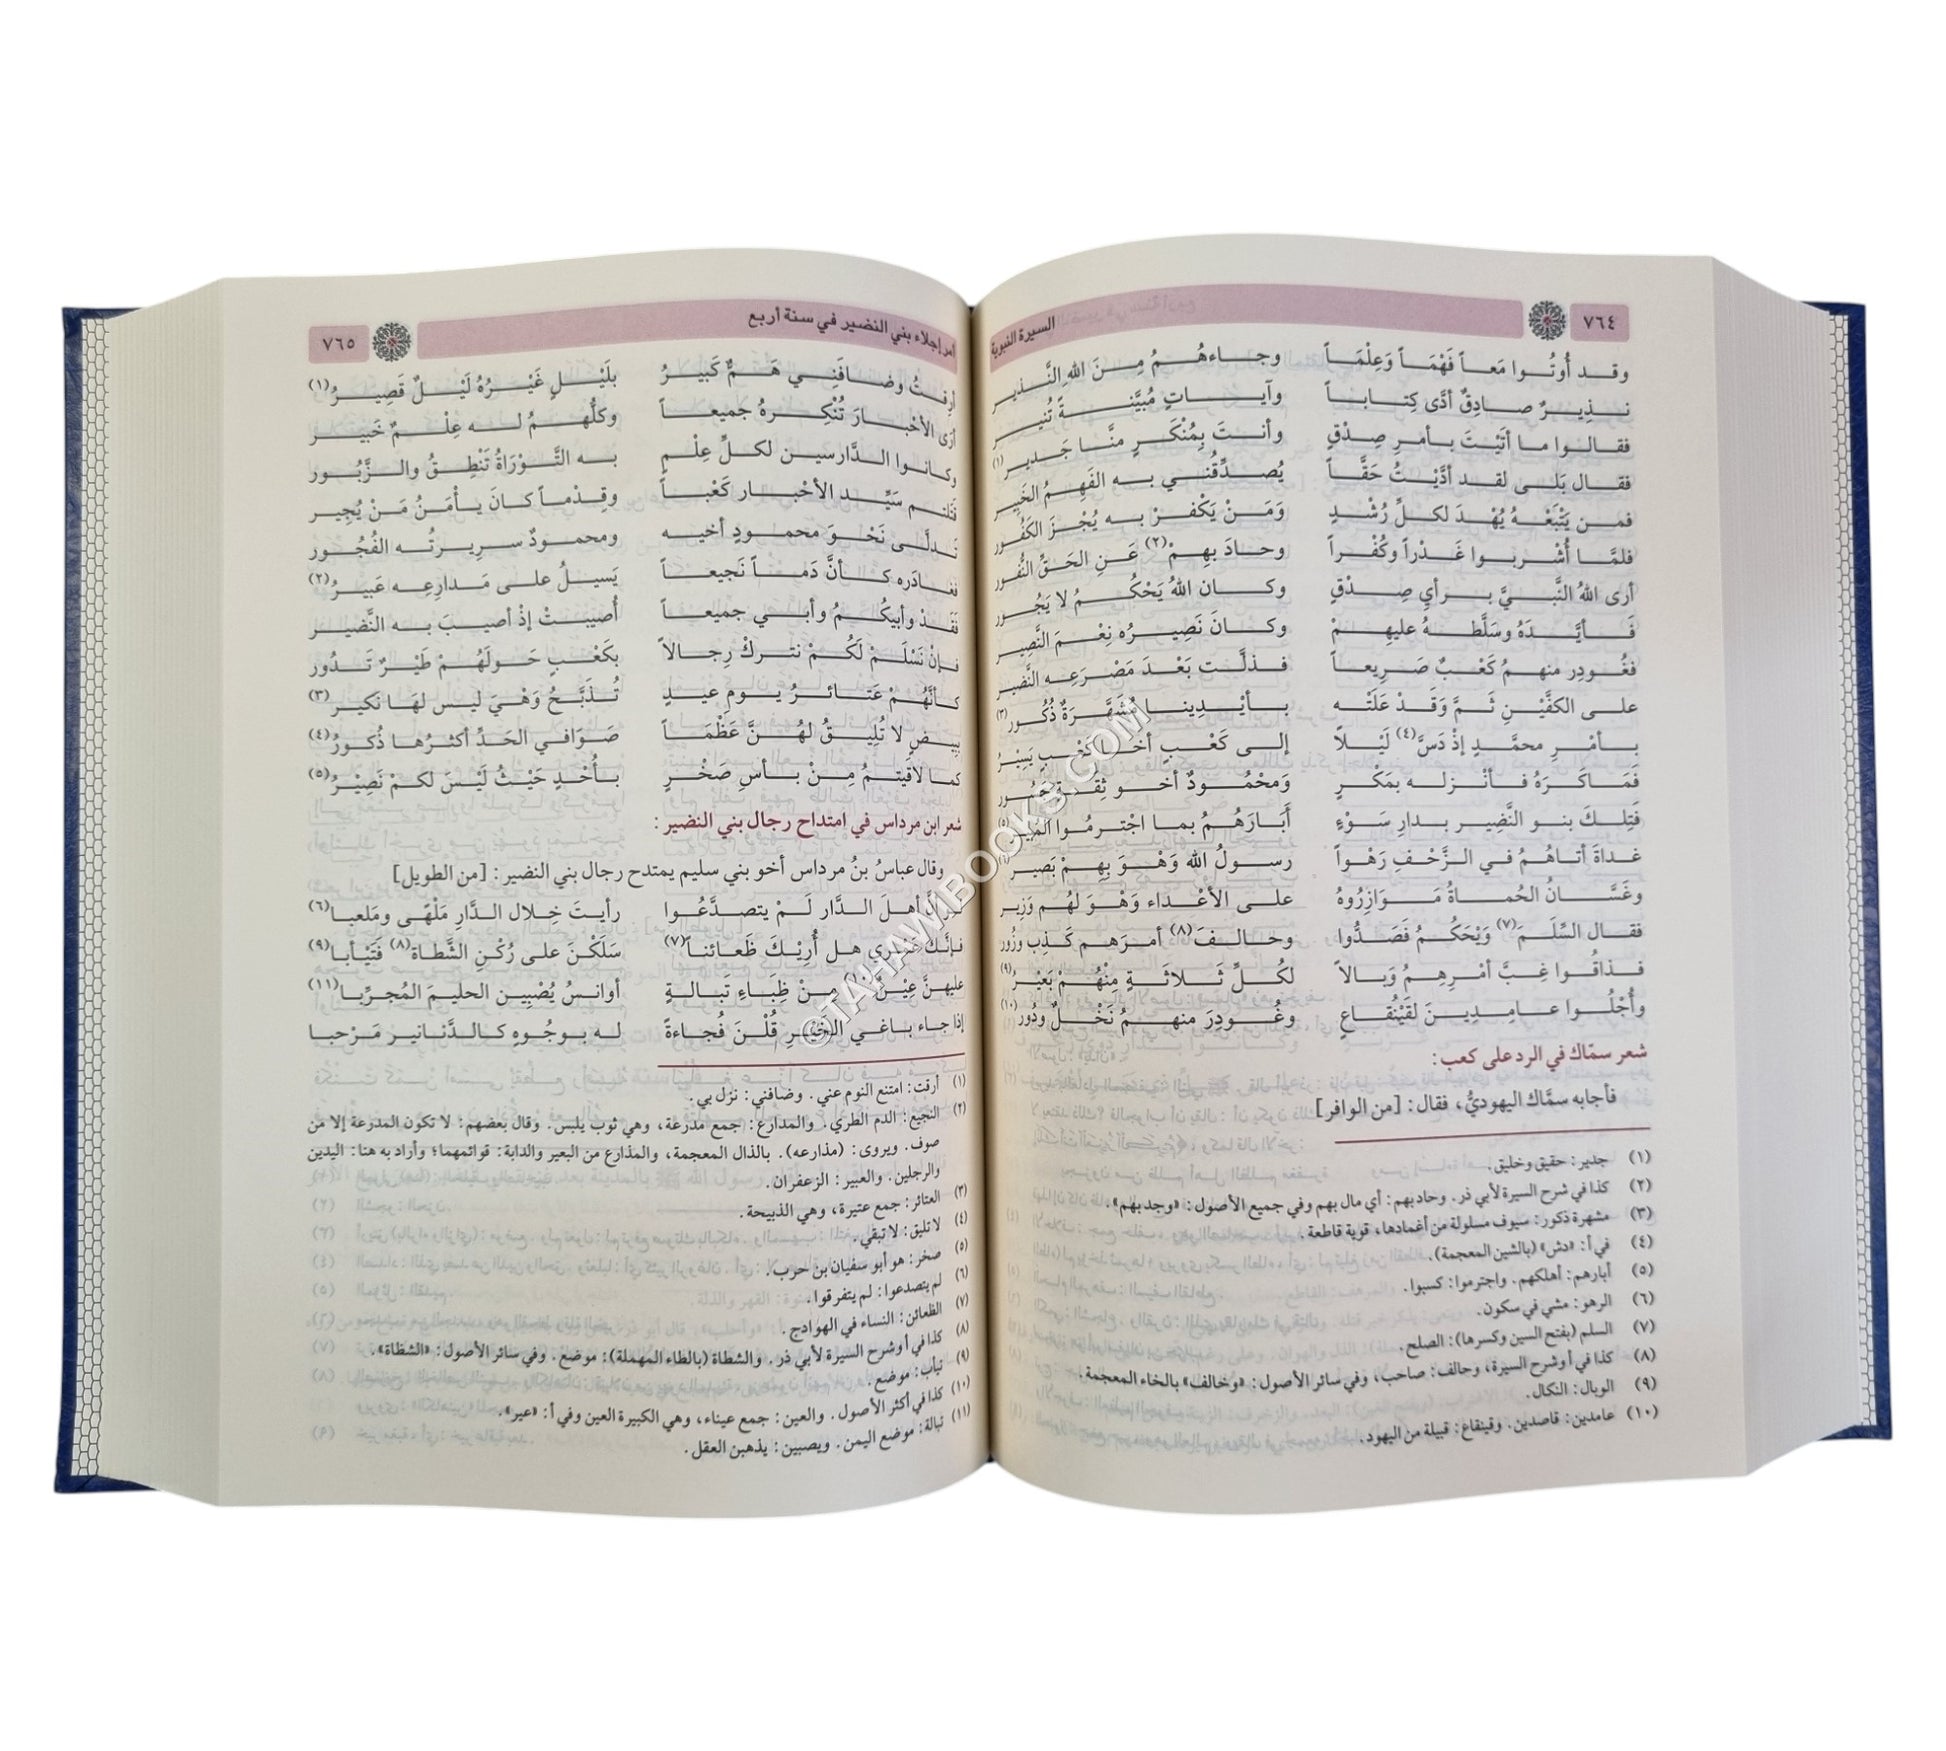 ٧٦٤
السيرة النبوية
وقد أُوتُوا مَعاً فَهْمَاً وَعِلْمَاً وجاءهُمُ مِنَ اللهِ النَّذير
نَذِيرٌ صادِقٌ أدَّى كِتاباً وآياتٍ مُبيَّنةً تُنير
فقالوا ما أتَيْتَ بأمرِ صِدْقٍ وأنتَ بِمُنْكَرٍ منَّا جَدير(١)
فقال بَلى لقد أدَّيْتُ حَقَّاً يُصدِّقُني به الفَهِمُ الخَبِير
فمن يَتْبَعْهُ يُهْدَ لكلِّ رُشْدٍ وَمَنْ يَكْفرْ به يُجْزَ الكَفُور
فلمَّا أُشْربوا غَدْراً وكُفْراً وحادَ بهِمْ(٢) عَنِ الحَقِّ النُّفور
أرى اللهُ النَّبيَّ برأيِ صِدْقٍ وكان اللهُ يَحْكُمُ لا يَجُور
فَأيَّدَهُ وسَلَّطهُ عليهِمْ وكانَ نَصِيرُه نِعْمَ النَّصِير
فغُودِر منهمُ كَعْبٌ صَرِيعاً فذلَّت بَعْدَ مَصْرَعِه النَّضير
على الكفَّيْنِ ثَمَّ وَقَدْ عَلَتْه بأيْدِينا مُشَهَّرَةٌ ذُكُور(٣)
بأمْرِ محمَّدٍ إذْ دَسَّ(٤) لَيْلاً إلى كَعْبٍ أخا كَعْبٍ يَسِير
فَمَاكَرَهُ فأنْزله بمَكْرٍ وَمَحْمُودٌ أخو ثِقَةٍ جَسُور
فَتِلكَ بنو النَّضِير بدارِ سَوْءٍ أَبَارَهُمُ بما اجْترمُوا المُبِير(٥)
غداةَ أتاهُمُ في الزَّحْفِ رَهْواً رسولُ الله وَهْوَ بِهِمْ بَصير(٦)
وغَسَّانُ الحُماةُ مَوَازِرُوهُ على الأعْداء وَهْوَ لهُم وَزِير
فقال السِّلَمَ(٧) وَيْحَكُمُ فَصَدُّوا وحالفَ(٨) أمرَهم كَذِب وزُور
فذاقُوا غِبَّ أمْرِهِمُ وَبالاً لكُلِّ ثَلاثَةٍ مِنْهُمْ بَعِيْرُ(٩)
وأُجْلُوا عامِدِينَ لقَيْنُقاعِ وغُودِرَ منهمُ نَخْلٌ ودُور(١٠)
شعر سمّاك في الرد على كعب:
فأجابه سمَّاك اليهوديُّ، فقال: [من الوافر]
(١) جدير: حقيق وخليق.
(٢) كذا في شرح السيرة لأبي ذر. وحاد بهم: أي مال بهم وفي جميع الأصول: «وجد بهم».
(٣) مشهرة ذكور: سيوف مسلولة من أغمادها، قوية قاطعة.
(٤) في أ: «دش» (بالشين المعجمة).
(٥) أبارهم: أهلكهم. واجترموا: كسبوا.
(٦) الرهو: مشي في سكون.
(٧) السلم (بفتح السين وكسرها): الصلح.
(٨) كذا في أ وشرح السيرة، وحالف: صاحب، وفي سائر الأصول: «وخالف» بالخاء المعجمة.
(٩) الوبال: النكال.
(١٠) عامدين: قاصدين. وقينقاع: قبيلة من اليهود.
أمر إجلاء بني النضير في سنة أربع
٧٦٥
أرِقتُ وضافَنِي هَمٌّ كَبيرُ بلَيْلٍ غَيْرُهُ لَيْلٌ قَصِيرُ(١)
أرَى الأحْبارَ تُنْكِرهُ جميعاً وكلُّهمُ له عِلْمٌ خَبير
وكانوا الدَّارسين لكلِّ عِلْمٍ به التَّوْرَاةُ تَنْطِقُ والزَّبُور
قَتلتم سَيِّد الأحْبار كَعْباً وقِدْماً كانَ يأْمَنُ مَنْ يُجِير
تَدلَّى نَحْوَ محمودٍ أخيه ومحمودٌ سرِيرتُه الفُجُور
فغادَره كأنَّ دَماً نَجيعاً يَسيلُ على مَدارعِه عَبيرُ(٢)
فَقَدْ وأبِيكُمُ وأبي جميعاً أُصيبتْ إذْ أصيبَ به النَّضير
فإنْ نَسْلَمْ لَكُمْ نتركْ رِجالاً بكَعْبٍ حَولَهُمْ طَيْرٌ تَدُور
كأنَّهُمْ عَتائرُ يومِ عيدٍ تُذَبَّحُ وَهْيَ ليس لهَا نَكير(٣)
بِبيضٍ لا تُلِيقُ لهُنَّ عَظْمَاً صَوَافي الحَدِّ أكثرُها ذُكُورُ(٤)
كما لاقَيتمُ مِنْ بأسِ صَخْرٍ بأُحْدٍ حَيْثُ لَيْسَ لكمْ نَصِيْرُ(٥)
شعر ابن مرداس في امتداح رجال بني النضير:
وقال عباسُ بنُ مرداس أخو بني سليم يمتدح رجال بني النضير: [من الطويل]
أهلَ الدَّار لَمْ يتصدَّعُوا رأيتَ خِلال الدَّارِ مَلْهًى ومَلعبا(٦)
فإنَّكَ عَمْري هل أُرِيْكَ ظَعائناً(٧) سَلَكْنَ على رُكْنِ الشَّطاة(٨) فَتَيْأبا(٩)
عليهنَّ عِيْنٌ مِنْ ظِباءِ تَبالةٍ أوانسُ يُصْبِين الحليمَ المُجرِّبا(١١)
إذا جاء باغي الخَيْرِ قُلْنَ فُجاءةً له بوجُوهٍ كالدَّنانير مَرْحبا
(١) أرقت: امتنع النوم عني. وضافني: نزل بي.
(٢) النجيع: الدم الطري. والمدارع: جمع مدرعة، وهي ثوب يلبس. وقال بعضهم: لا تكون المدرعة إلا من
صوف. ويروى: (مذارعه). بالذال المعجمة، والمذارع من البعير والدابة: قوائمهما؛ وأراد به هنا: اليدين
والرجلين. والعبير: الزعفران.
(٣) العتائر: جمع عتيرة، وهي الذبيحة.
(٤) لا تليق: لا تبقي.
(٥) صخر: هو أبو سفيان بن حرب.
(٦) لم يتصدعوا: لم يتفرقوا.
(٧) الظعائن: النساء في الهوادج.
(٨) كذا في أ وشرح السيرة لأبي ذر. والشطاة (بالطاء المهملة): موضع. وفي سائر الأصول: «الشظاة».
(٩) تيأب: موضع.
(١٠) كذا في أكثر الأصول. والعين: جمع عيناء، وهي الكبيرة العين وفي أ: «عير».
(١١) تبالة: موضع اليمن. ويصبين: يذهبن العقل.
©TAHAWIBOOKS.COM